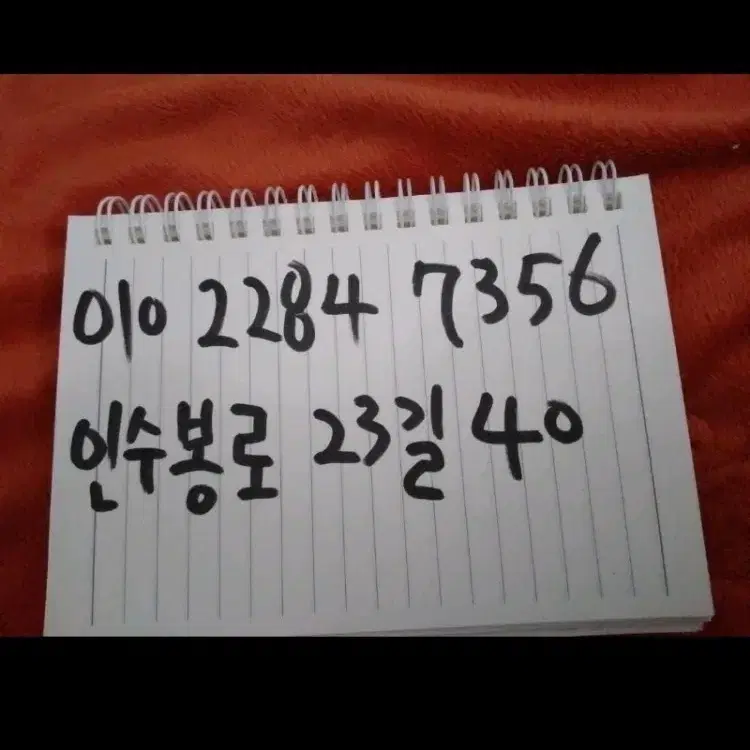 010 2284 7356
인수봉로 23길 40